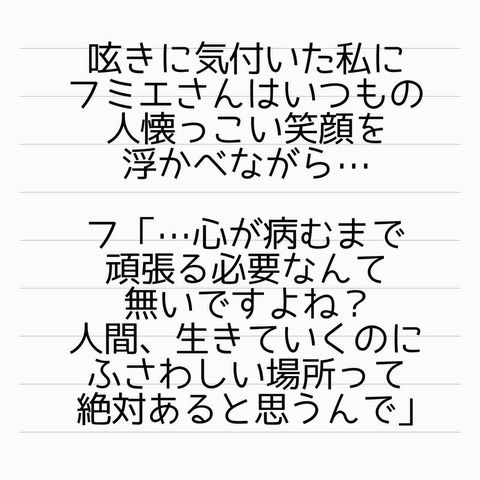 呟きに気付いた私に
フミエさんはいつもの
人懐っこい笑顔を
浮かべながら…
フ「…心が病むまで
頑張る必要なんて
無いですよね？
人間、生きていくのに
ふさわしい場所って
絶対あると思うんで」